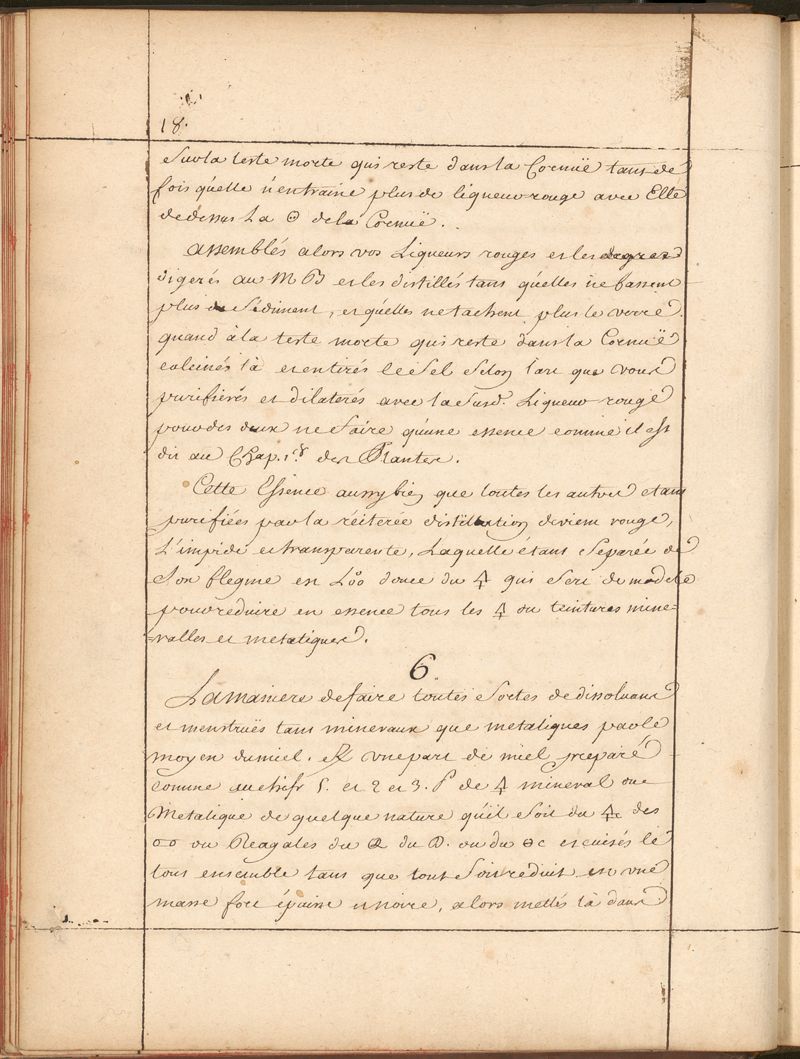 18.
Sur la teste morte qui reste dans la Cornuë tant de
fois qu'elle n'entraine plus de liqueur rouge avec Elle
de dessus La ☉ de la Cornuë.
assemblés alors vos Liqueurs rouges et les
digerés au MB et les distillés tant qu'elles ne fassent
plus de Sédiment, et qu'elles ne tachent plus le verre.
quand à la teste morte qui reste dans la Cornuë
calcinés là et en tirés le Sel Selon l'art que vous
purifierés et dilaterés avec la Susd.e Liqueur rouge
pour des deux ne faire qu'une essence comme il est
dit au Chap. 1.r des Plantes.
Cette Essence aussy bien que toutes les autres etant
purifiées par la réiterée distillation devient rouge,
L'impide et transparente, Laquelle étant Separée de
Son flegme en L'oo douce du 🜍 qui Sert de modele
pour reduire en essence tous les 🜍 ou teintures mine=
=ralles et metaliques.
6.
La maniere de faire toutes Sortes de dissoluant
et menstruës tant mineraux que metaliques par le
moyen du miel. ℞ une part de miel preparé
comme au chifr 1. et 2 et 3. P de 🜍 mineral ou
Metalique de quelque nature qu'il Soit du des
oo ou Reagales du du ☽. ou du et cuisés le
tout ensemble tant que tout Soit reduit en une
masse fort épaisse et noire, alors mettés là dans